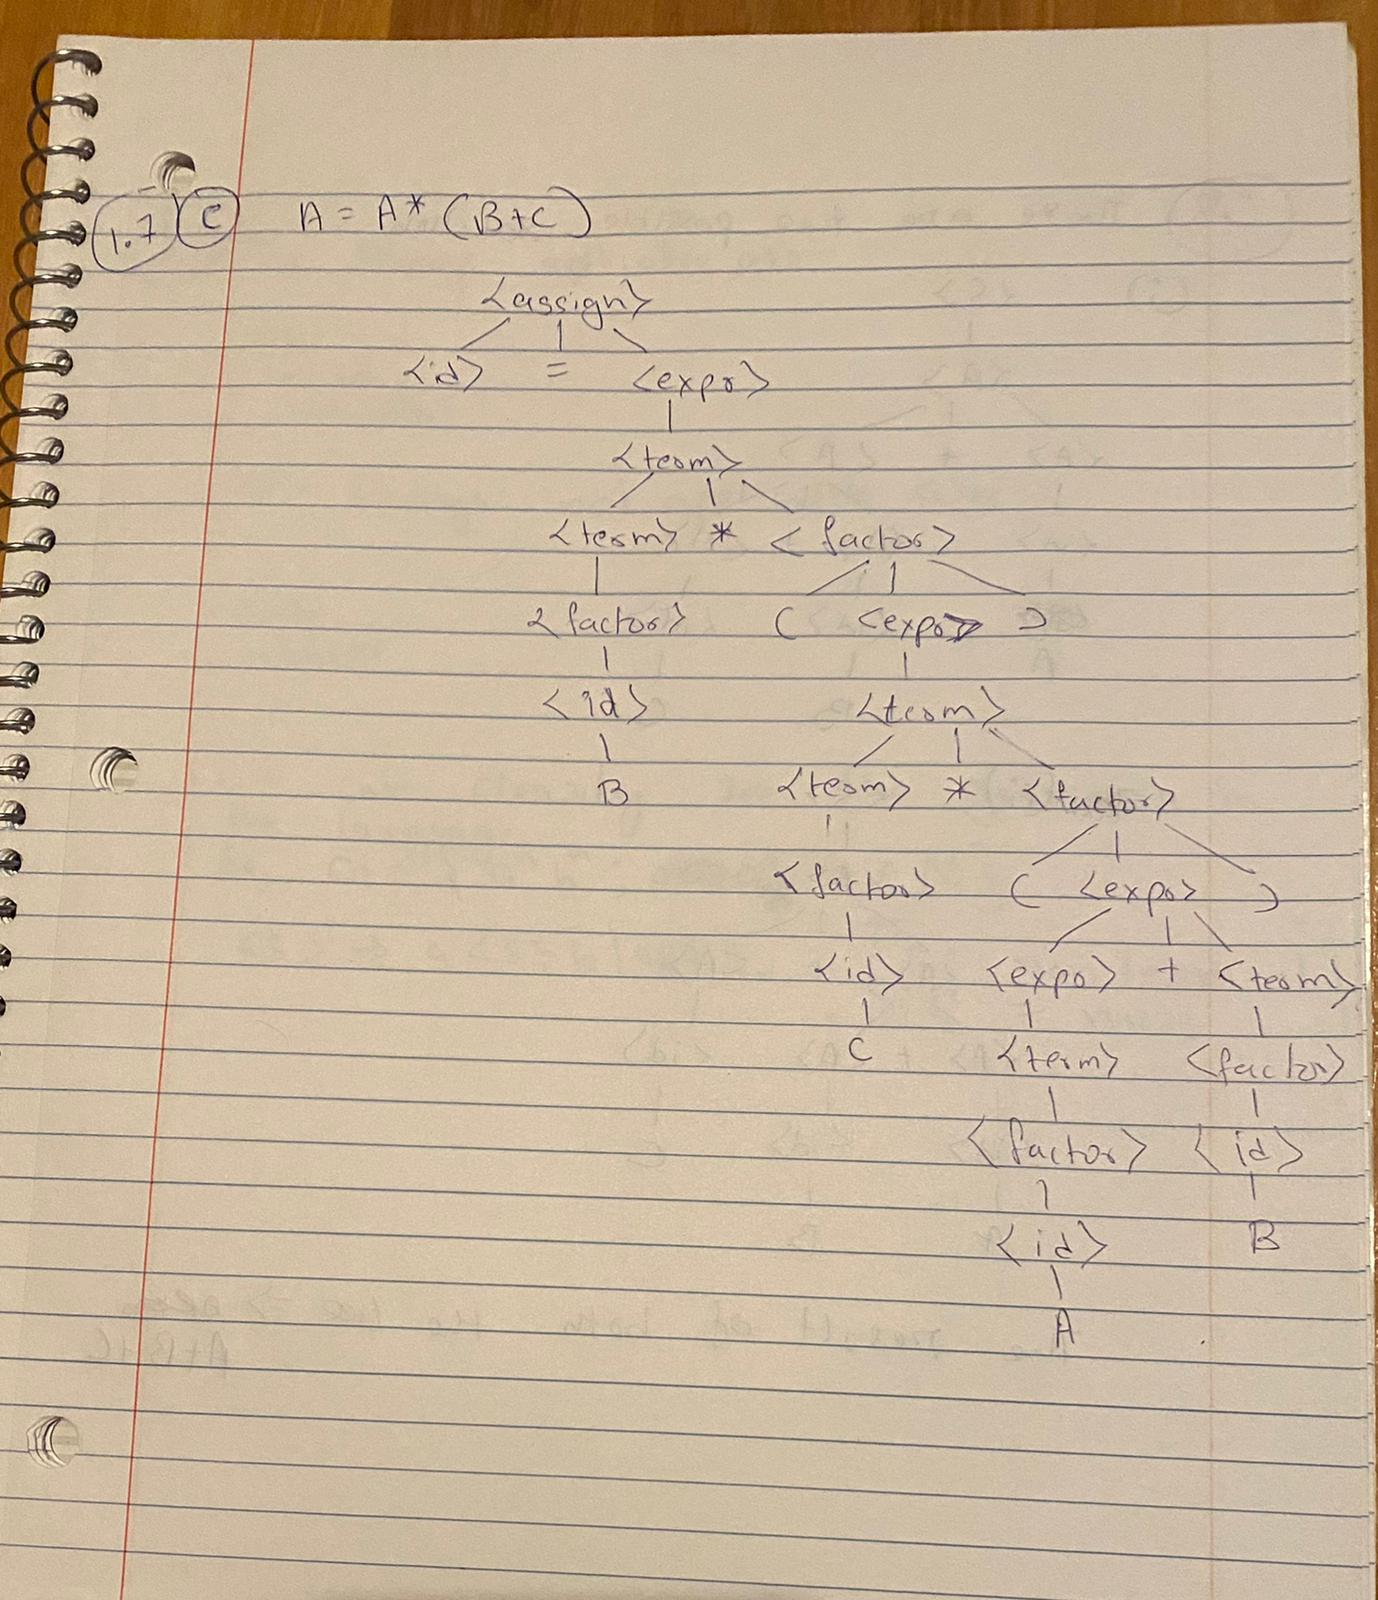 1.7 C A = A * (B+C)
<assign>
<id> = <expr>
<term>
<term> * <factor>
<factor> ( <expr> )
<id> <term>
B <term> * <factor>
<factor> ( <expr> )
<id> <expr> + <term>
C <term> <factor>
<factor> <id>
<id> B
A